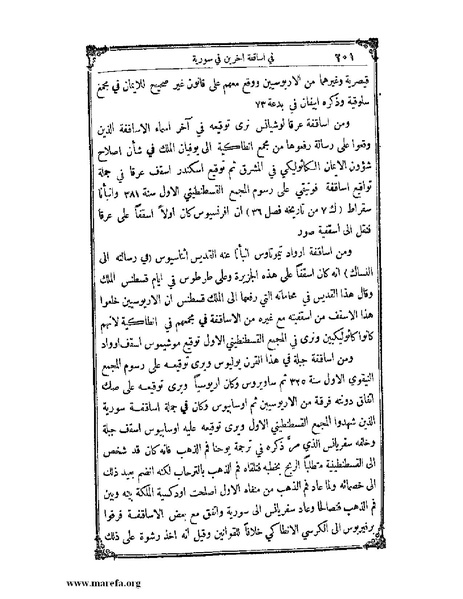 في اساقفة آخرين في سورية ٢٠١
قيصرية وغيرهما من الاريوسيين ووقع معهم على قانون غير صحيح للايمان في مجمع
سلوقية وذكره ابيفان في بدعة ٧٣
ومن اساقفة عرقا لوشيانس نرى توقيعه في آخر اسماء الاساقفة الذين
وقعوا على رسالة رفعوها من مجمع انطاكية الى يوفيان الملك في شأن اصلاح
شؤون الايمان الكاثوليكي في المشرق ثم توقيع اسكندر اسقف عرقا في جملة
تواقيع اساقفة فونيقي على رسوم المجمع القسطنطيني الاول سنة ٣٨١ وانبأنا
سقراط (ك ٧ من تاريخه فصل ٣٦) ان افرنسيوس كان اولاً اسقفاً على عرقا
فنقل الى اسقفية صور
ومن اساقفة ارواد تيموتاوس انبأنا عنه القديس اتناسيوس (في رسالته الى
النساك) انه كان اسقفاً على هذه الجزيرة وعلى طرطوس في ايام قسطنس الملك
وقال هذا القديس في محاماته التي رفعها الى الملك قسطنس ان الاريوسيين خلعوا
هذا الاسقف من اسقفيته مع غيره من الاساقفة في مجمعهم في انطاكية لانهم
كانوا كاثوليكيين ونرى في المجمع القسطنطيني الاول توقيع موشيموس اسقف ارواد
ومن اساقفة جبلة في هذا القرن يوليوس ويرى توقيعه على رسوم المجمع
النيقوي الاول سنة ٣٢٥ ثم ساويروس وكان اريوسياً ويرى توقيعه على صك
اتفاق دونته فرقة من الاريوسيين ثم اوسابيوس وكان في جملة اساقفة سورية
الذين شهدوا المجمع القسطنطيني الاول ويرى توقيعه عليه اوسابيوس اسقف جبلة
وخلفه سفريانس الذي مرَّ ذكره في ترجمة يوحنا فم الذهب فانه كان قد شخص
الى القسطنطينية متطلباً الربح بخطبه فتلقاه فم الذهب بالترحاب لكنه انضم بعيد ذلك
الى خصمائه ولما عاد فم الذهب من منفاه الاول اصلحت اودكسية الملكة بينه وبين
فم الذهب فتصالحا وعاد سفريانس الى سورية واتفق مع بعض الاساقفة فرقوا
برفيريوس الى الكرسي الانطاكي خلافاً للقوانين وقيل انه اخذ رشوة على ذلك
www.marefa.org